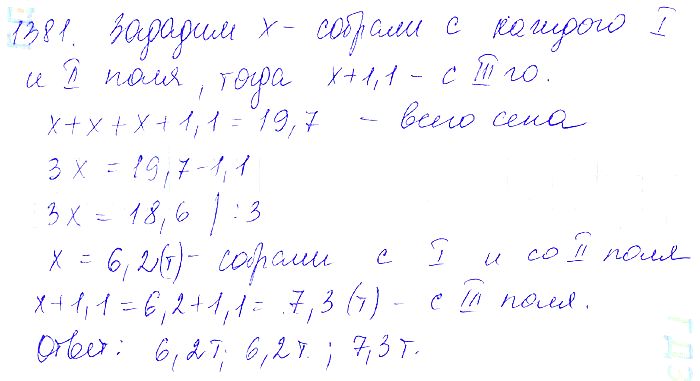 1381. Зададим х - собрали с каждого I
и II поля, тогда х+1,1 - с III го.
х+х+х+1,1=19,7 - всего сена
3х=19,7-1,1
3х=18,6 | :3
х=6,2(т)- собрали с I и со II поля
х+1,1=6,2+1,1=7,3(т) - с III поля.
Ответ: 6,2т; 6,2т; 7,3т.
ГДЗ